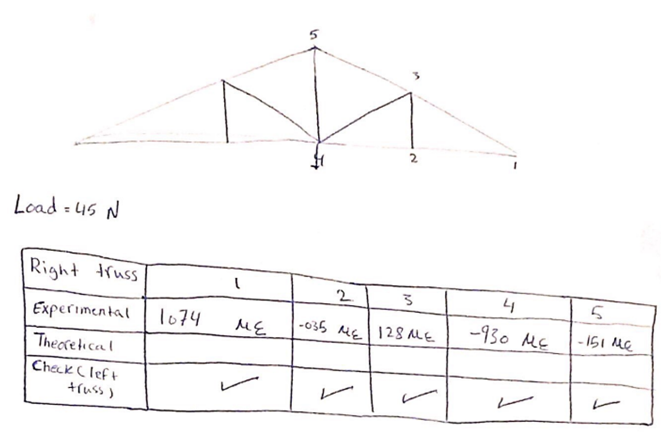 5
3
4
2
1
Load = 45 N
Right truss 1 2 3 4 5
Experimental 1074 με -035 με 128 με -930 με -151 με
Theoretical
Check (left
truss)
✓ ✓ ✓ ✓ ✓